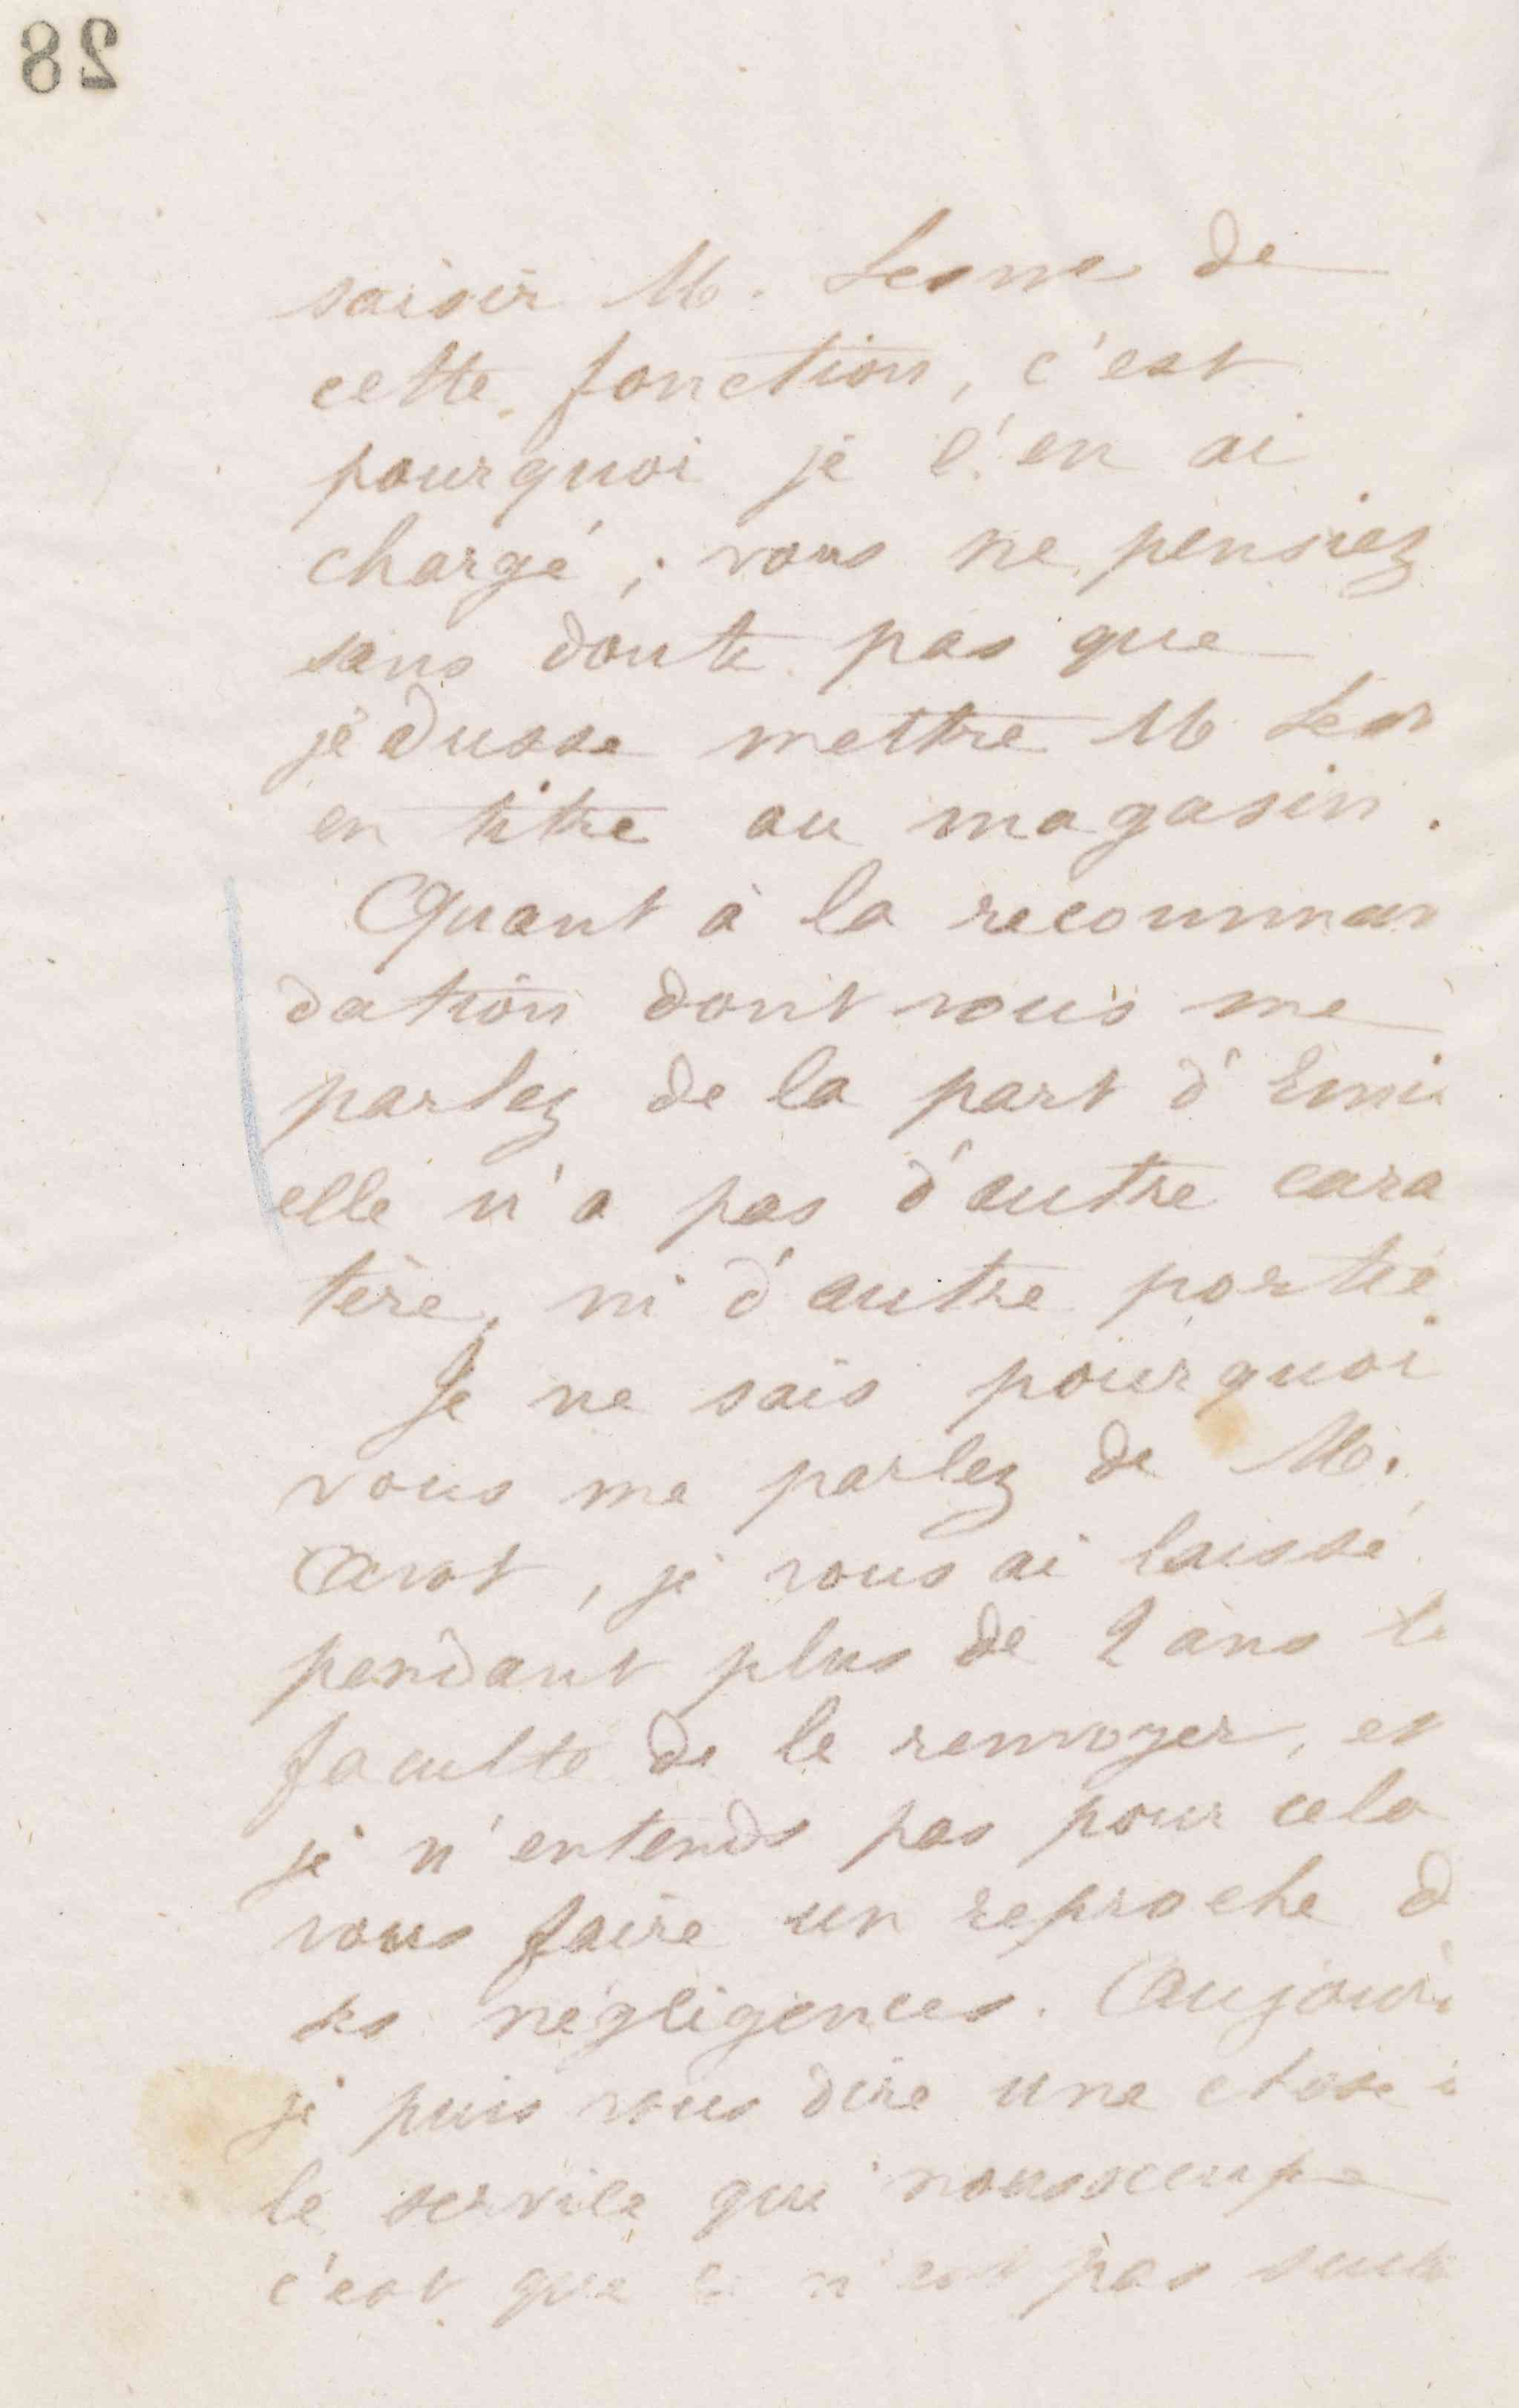 28
saisir M. Lesne de
cette fonction, c'est
pourquoi je l'en ai
chargé ; vous ne pensiez
sans doute pas que
je dusse mettre M Les
en titre au magasin.
Quant à la recomman
dation dont vous me
parlez de la part d'Emi
elle n'a pas d'autre cara
tère, ni d'autre portée
Je ne sais pourquoi
vous me parlez de M.
Carot, je vous ai laissé
pendant plus de 2 ans la
faculté de le renvoyer, et
je n'entends pas pour cela
vous faire un reproche d
ses négligences. Aujour
je puis vous dire une chose
le service qui nous occupe
c'est que n'est pas seule